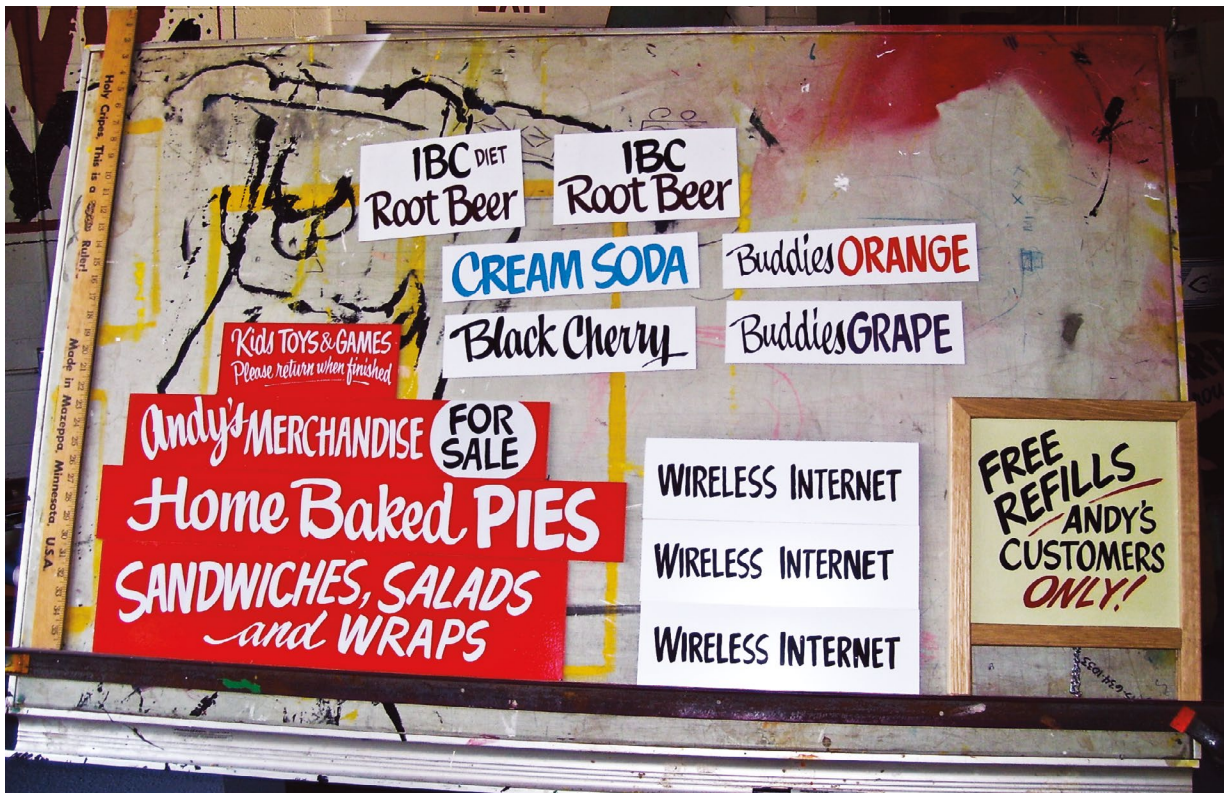 EXIT
Holy Cripes, This is a Ruler!
Made in Mazeppa, Minnesota, U.S.A.
IBC DIET
Root Beer
IBC
Root Beer
CREAM SODA
Buddies ORANGE
Black Cherry
Buddies GRAPE
Kids TOYS & GAMES
Please return when finished
Andy's MERCHANDISE
FOR
SALE
Home Baked PIES
SANDWICHES, SALADS
and WRAPS
WIRELESS INTERNET
WIRELESS INTERNET
WIRELESS INTERNET
FREE
REFILLS
ANDY'S
CUSTOMERS
ONLY!